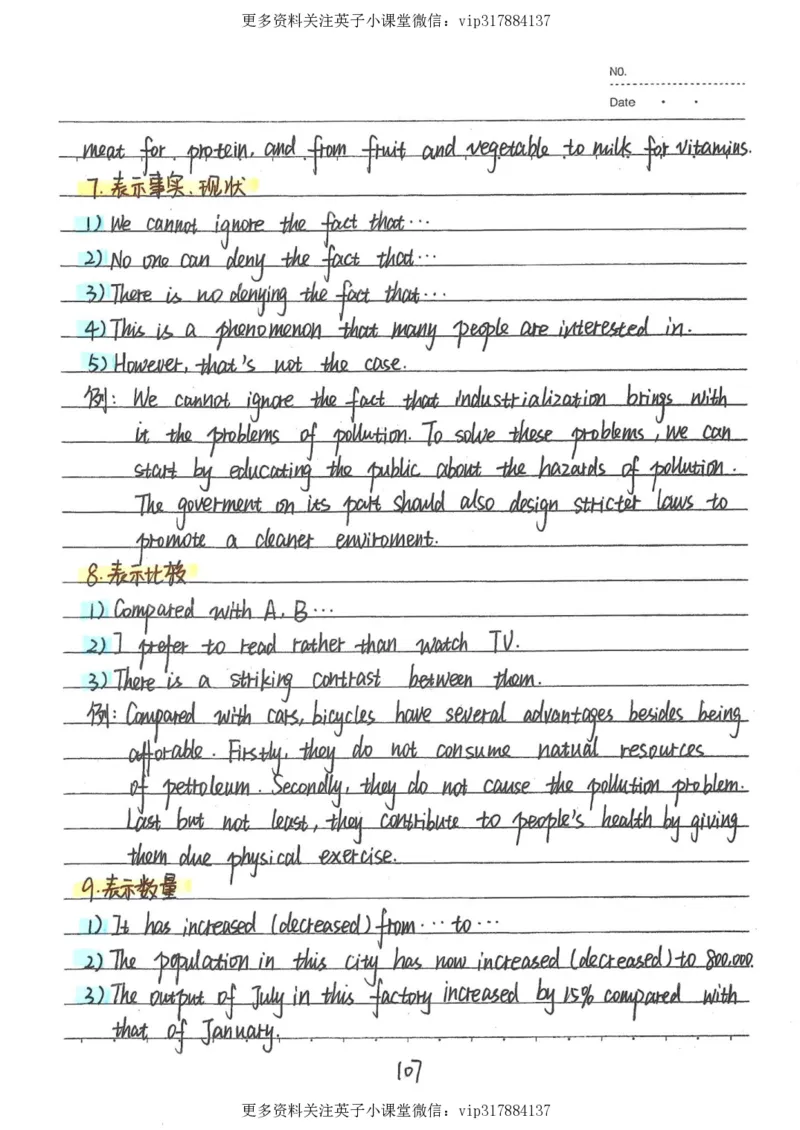 更多资料关注英子小课堂微信：vip317884137
NO.
Date
meat for protein, and from fruit and vegetable to milk for vitamins.
7. 表示事实、现状
1) We cannot ignore the fact that…
2) No one can deny the fact that…
3) There is no denying the fact that…
4) This is a phenomenon that many people are interested in.
5) However, that's not the case.
例: We cannot ignore the fact that industrialization brings with
it the problems of pollution. To solve these problems, we can
start by educating the public about the hazards of pollution.
The goverment on its part should also design stricter laws to
promote a cleaner enviroment.
8. 表示比较
1) Compared with A, B…
2) I prefer to read rather than watch TV.
3) There is a striking contrast between them.
例: Compared with cars, bicycles have several advantages besides being
afforable. Firstly, they do not consume natual resources
of petroleum. Secondly, they do not cause the pollution problem.
Last but not least, they contribute to people's health by giving
them due physical exercise.
9. 表示数量
1) It has increased (decreased) from … to …
2) The population in this city has now increased (decreased) to 800,000.
3) The output of July in this factory increased by 15% compared with
that of January.
107
更多资料关注英子小课堂微信：vip317884137